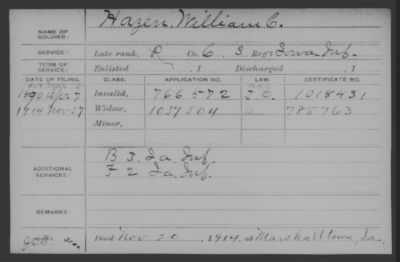 NAME OF SOLDIER: Hazen, William C.
SERVICE: Late rank, P Co. C, 3 Reg't Iowa Inf.
TERM OF SERVICE: Enlisted , 1 Discharged , 1
DATE OF FILING. CLASS. APPLICATION NO. LAW. CERTIFICATE NO.
1890 Apr 7 Invalid, 766572 1018431
1914 Nov 27 Widow, 1037504 a 785763
Minor,
ADDITIONAL SERVICES: B 3, Ia Inf.
F 2 Ia Inf.
REMARKS:
Died Nov 20, 1914, at Marshalltown, Ia.